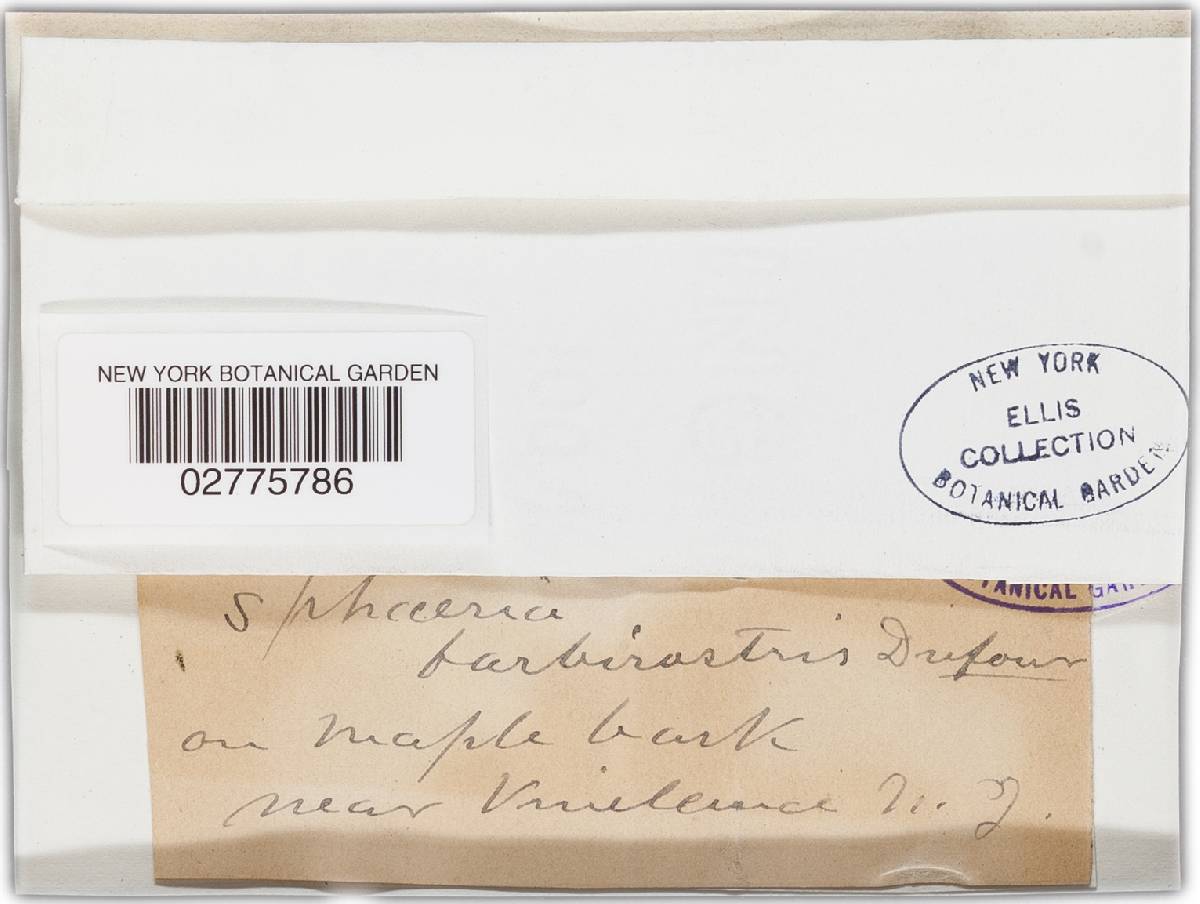 NEW YORK BOTANICAL GARDEN
02775786
NEW YORK
ELLIS
COLLECTION
BOTANICAL GARDEN
TANICAL GAR
Sphaeria
barbirostris Dufour
on maple bark
near Vineland N. J.